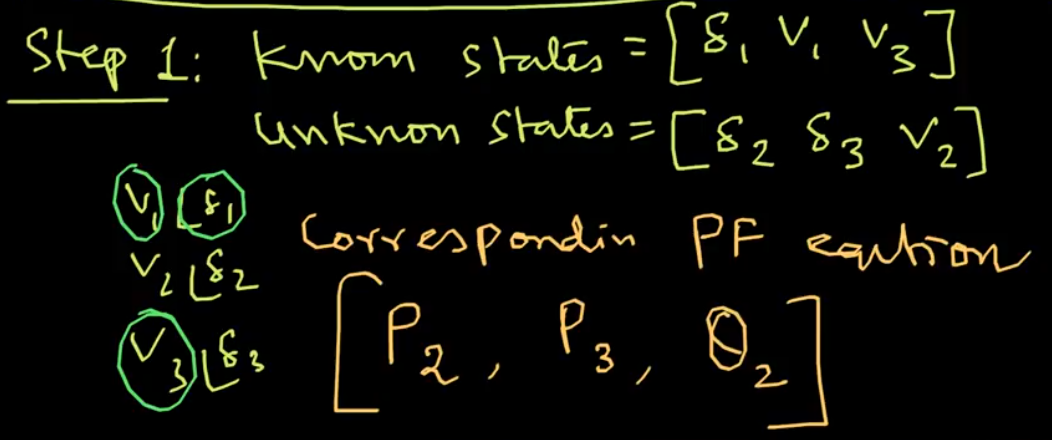 Step 1: Knom states = [δ₁ V₁ V₃]
unknon states = [δ₂ δ₃ V₂]
V₁∠δ₁
V₂∠δ₂
V₃∠δ₃
Correspondin PF eqution
[P₂, P₃, Q₂]